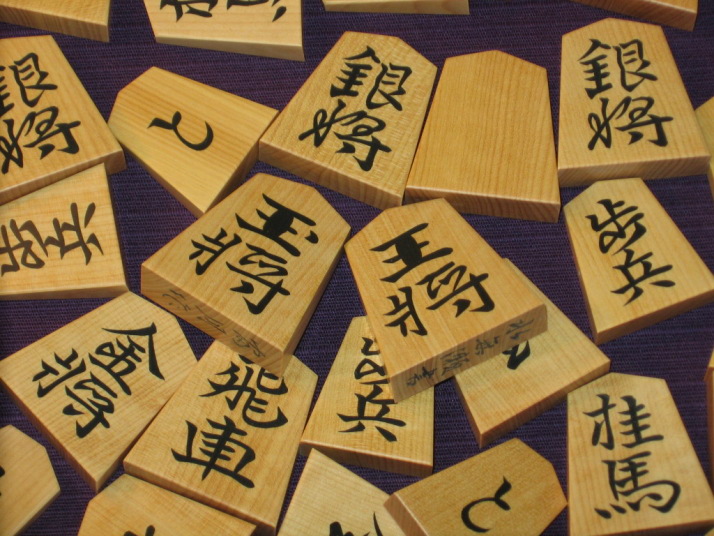 銀将
と
銀将
銀将
歩兵
玉将
王将
歩兵
金将
飛車
歩兵
桂馬
と